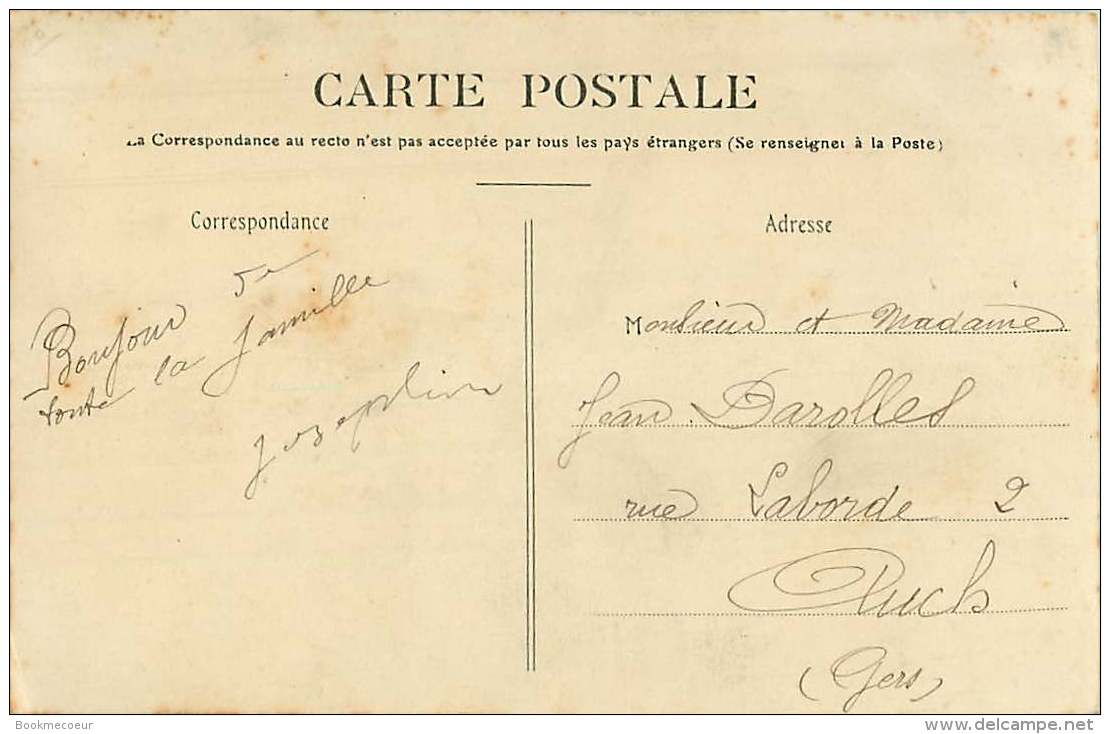 CARTE POSTALE
La Correspondance au recto n'est pas acceptée par tous les pays étrangers (Se renseigner à la Poste)
Correspondance
Bonjour de
toute la famille
Josephine
Adresse
Monsieur et Madame
Jean Darolles
rue Laborde 2
Auch
(Gers)
Bookmecoeur
www.delcampe.net